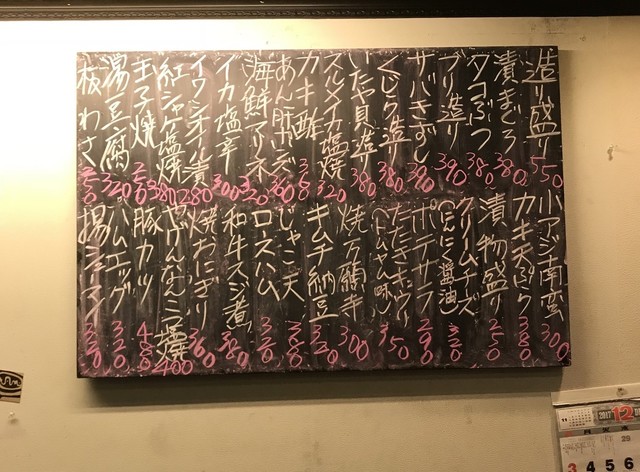 造り盛り 550
漬まぐろ 380
タコぶつ 380
ブリ造り 390
サバきずし 390
くじら造り 380
いたや貝造り 380
スルメイカ塩焼 320
カキ酢 380
あん肝ポン酢
海鮮マリネ 320
イカ塩辛 300
イワシオイル漬 280
紅シャケ塩焼 380
玉子焼
湯豆腐 320
板わさ 250
小アジ南蛮 300
カキ天ぷら 380
漬物盛り 250
クリームチーズ
(にんにく醤油) 320
ポテサラ 290
たたききゅうり
(トムヤム味) 150
焼万願寺 300
キムチ納豆 320
じゃこ天
ロースハム 320
和牛スジ煮 380
焼おにぎり 360
豚カツ 480
ハムエッグ 320
揚シュウマイ
2017 12
3 4 5 6